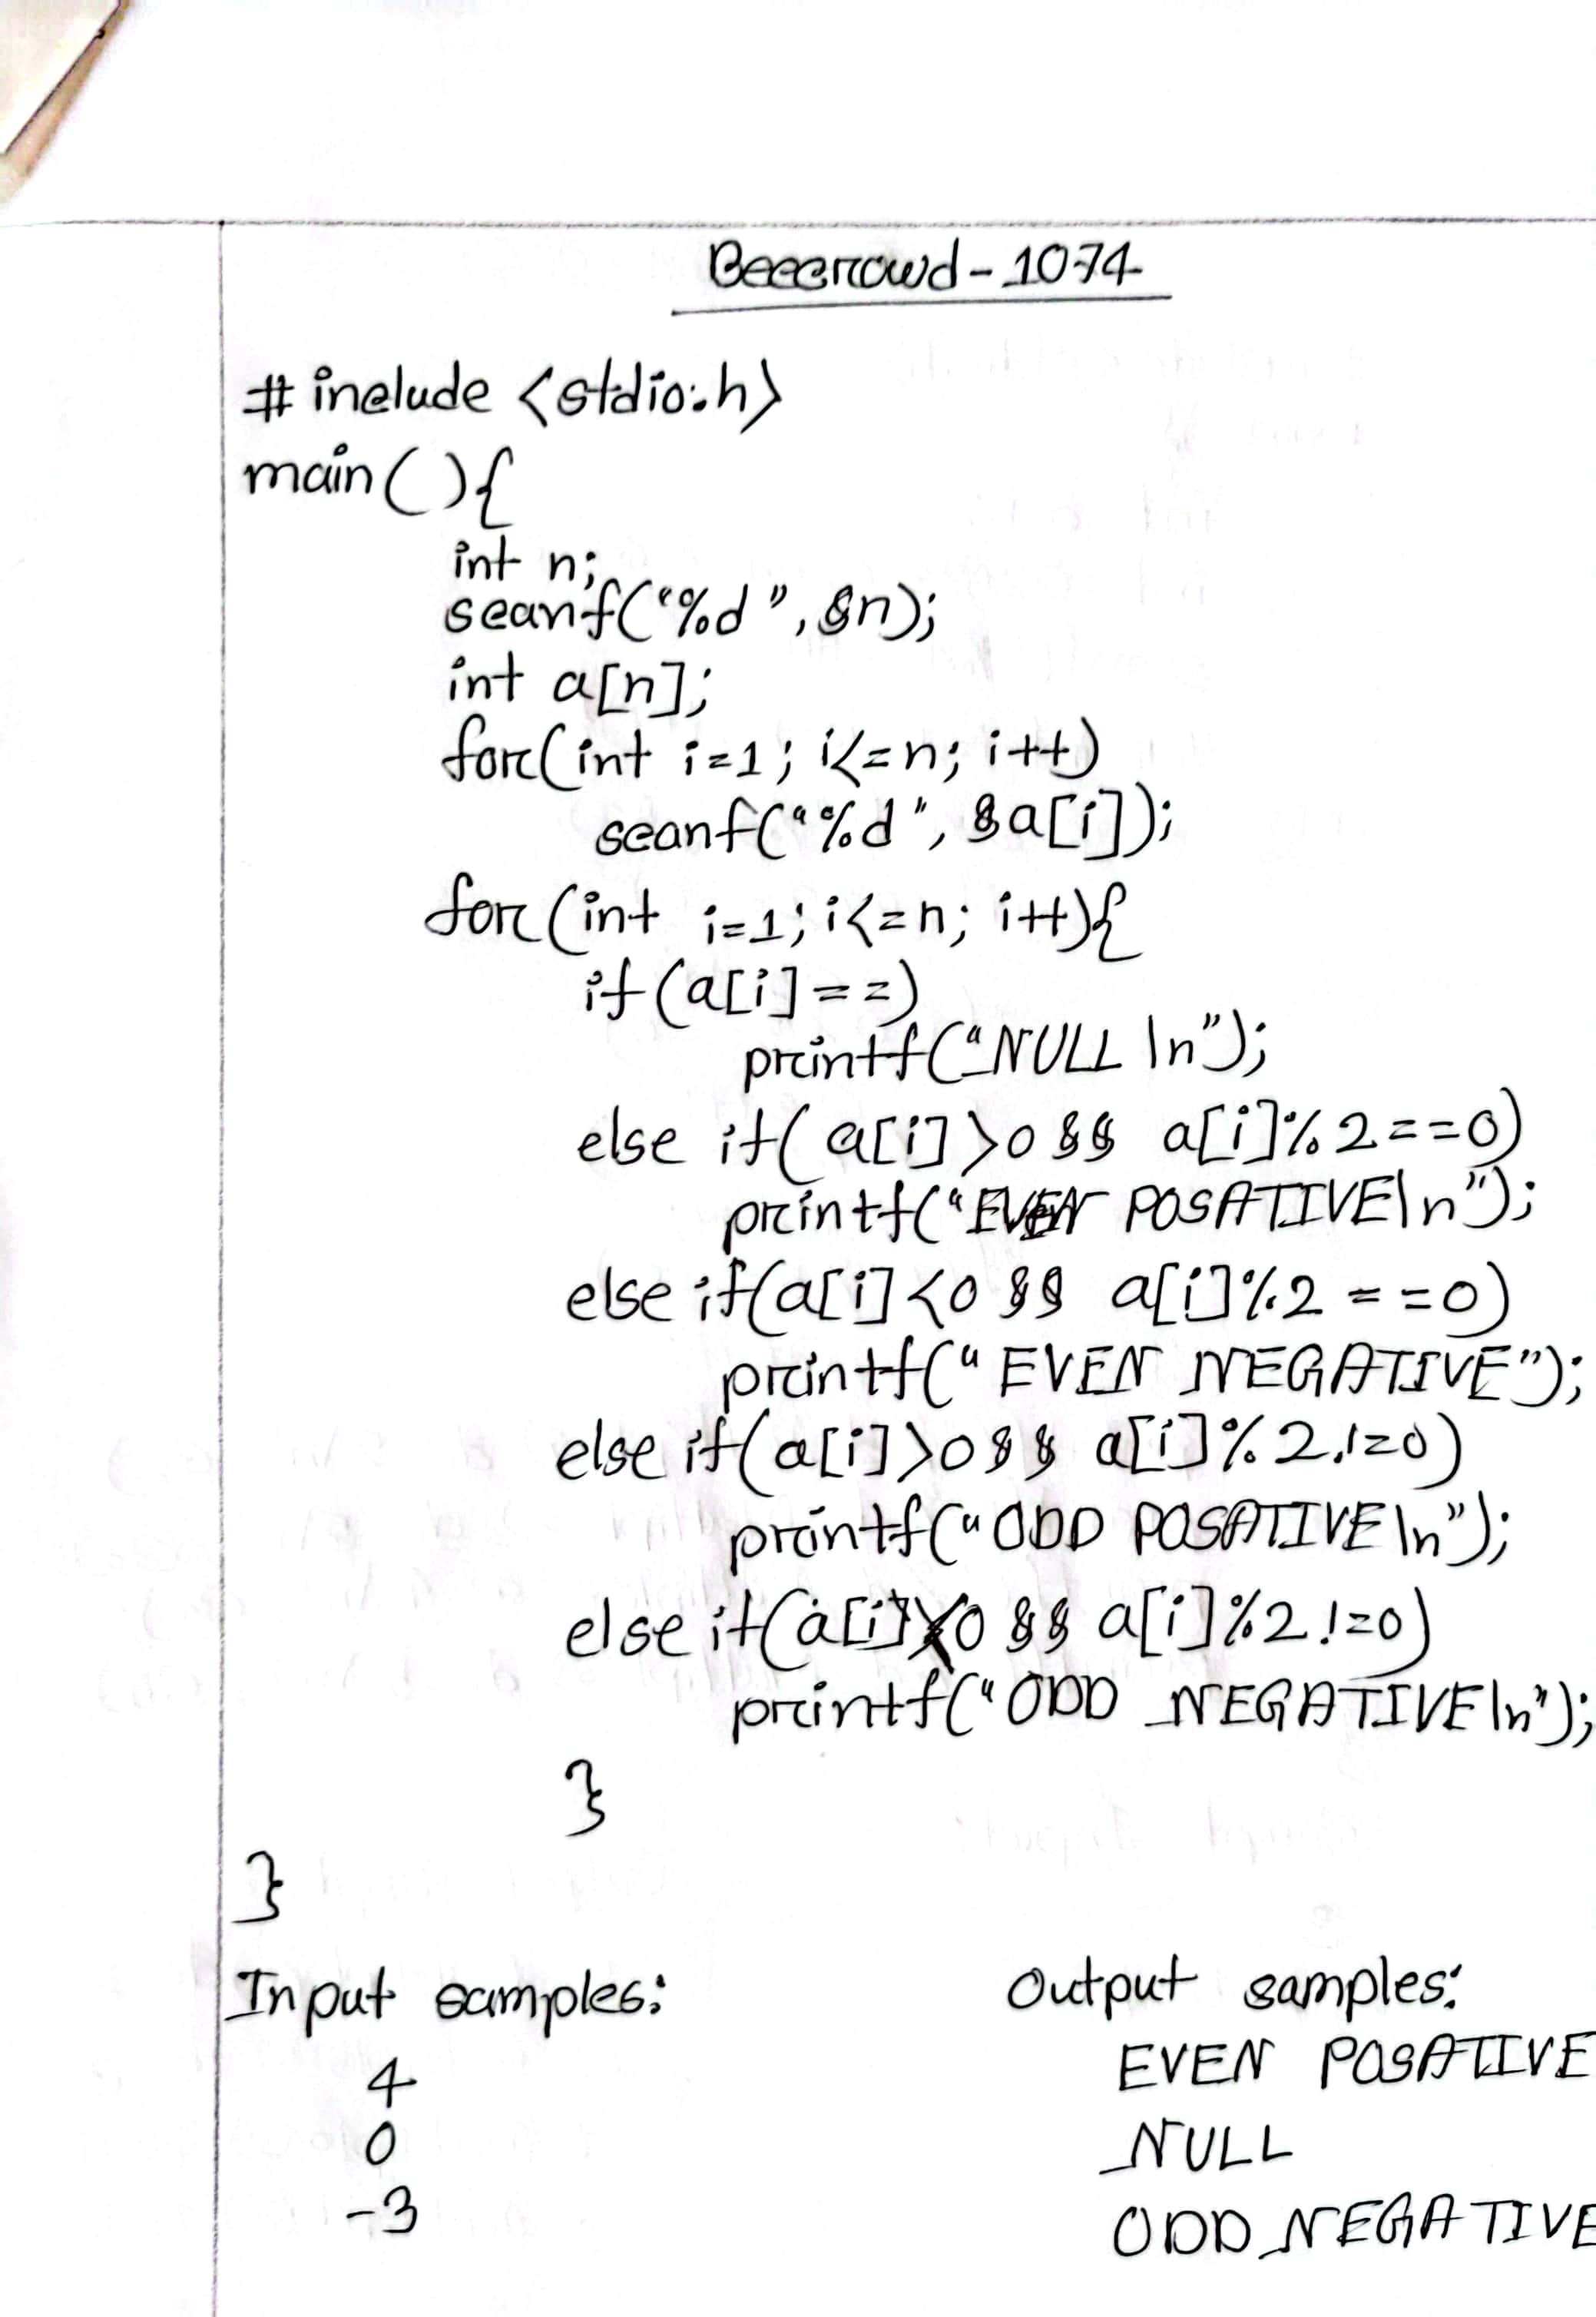 Beecrowd - 1074
# include <stdio.h>
main(){
int n;
scanf("%d", &n);
int a[n];
for(int i=1; i<=n; i++)
scanf("%d", &a[i]);
for(int i=1; i<=n; i++){
if(a[i]==)
printf("NULL \n");
else if(a[i]>0 && a[i]%2==0)
printf("EVEN POSATIVE\n");
else if(a[i]<0 && a[i]%2==0)
printf("EVEN NEGATIVE");
else if(a[i]>0 && a[i]%2!=0)
printf("ODD POSATIVE\n");
else if(a[i]<0 && a[i]%2!=0)
printf("ODD NEGATIVE\n");
}
}
Input samples: Output samples:
4 EVEN POSATIVE
0 NULL
-3 ODD NEGATIVE